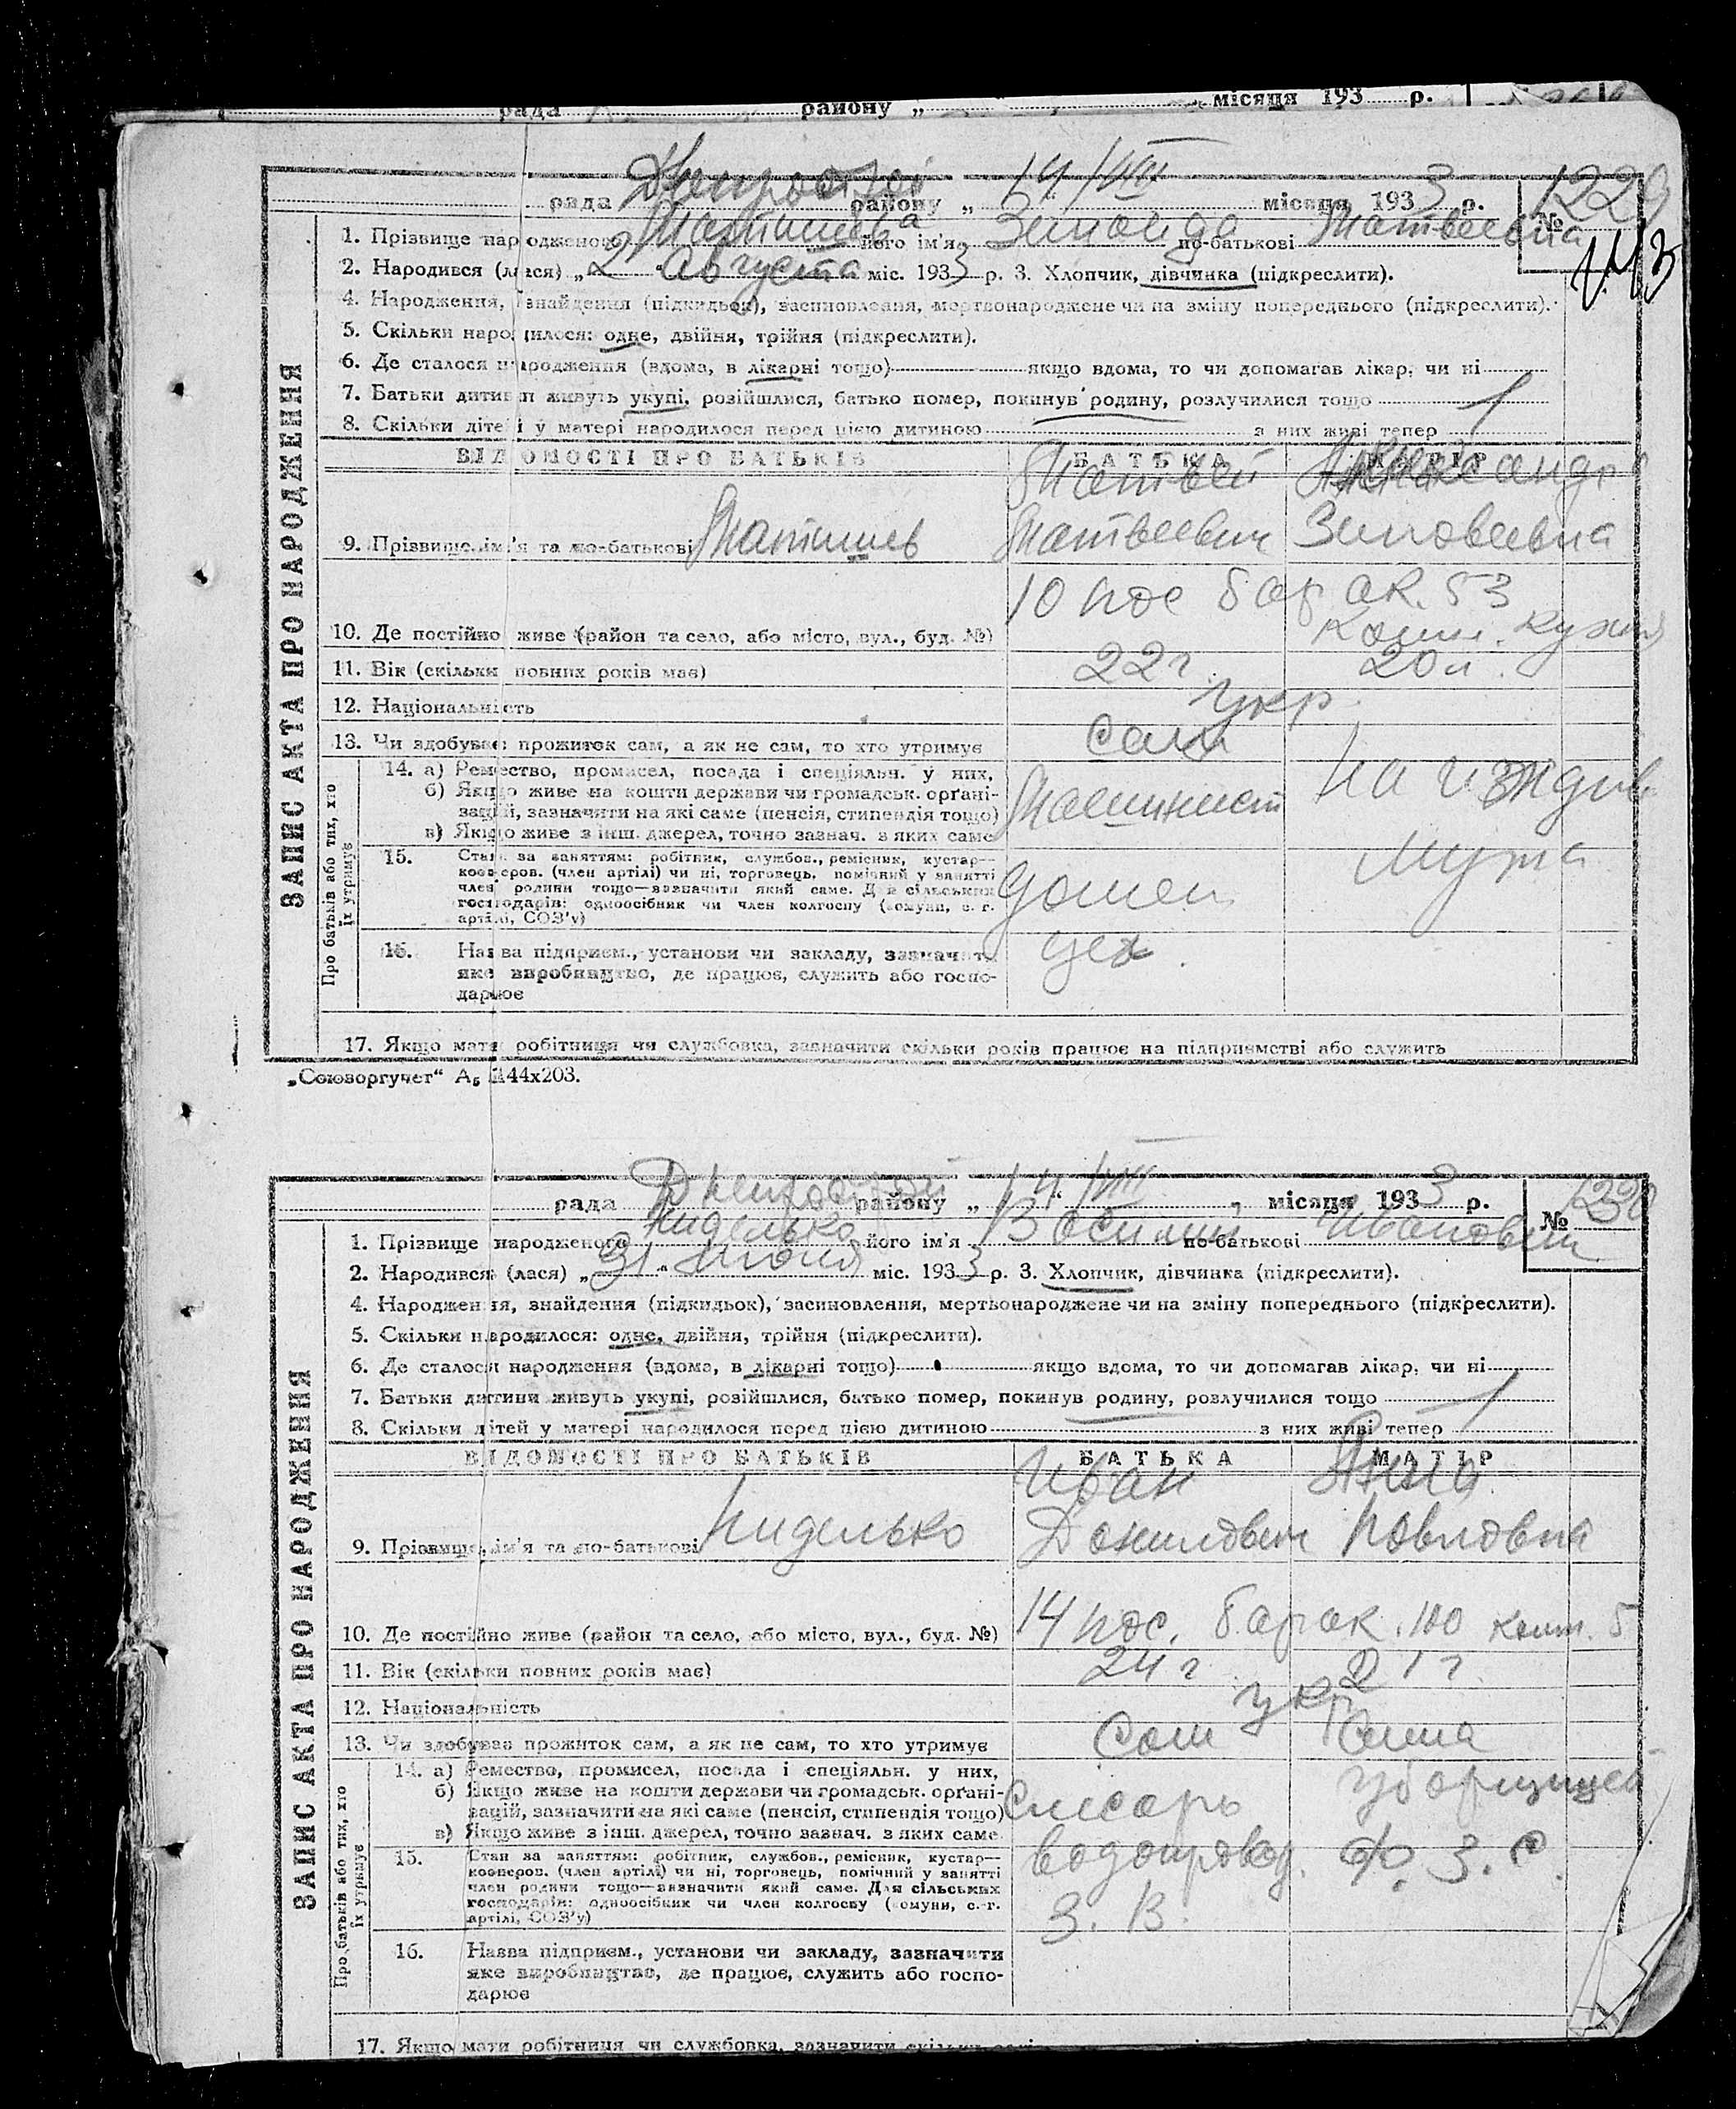 рада району „ місяця 193 р.
рада Днепрострой району „ 14/VIII місяця 1933 р. № 1229
1. Прізвище народженого його ім'я Зинаида по-батькові Матвеевна
143
2. Народився (лася) „2" августа міс. 1933 р. 3. Хлопчик, дівчинка (підкреслити).
4. Народження, знайдення (підкидьок), засиновлення, мертвонароджене чи на зміну попереднього (підкреслити).
5. Скільки народилося: одне, двійня, трійня (підкреслити).
6. Де сталося народження (вдома, в лікарні тощо) якщо вдома, то чи допомагав лікар, чи ні
7. Батьки дитини живуть укупі, розійшлися, батько помер, покинув родину, розлучилися тощо
8. Скільки дітей у матері народилося перед цією дитиною з них живі тепер
ВІДОМОСТІ ПРО БАТЬКІВ БАТЬКА МАТІР
Матвей Александра
9. Прізвище, ім'я та по-батькові Матвеевич Зиновеевна
10 пос барак. 53
10. Де постійно живе (район та село, або місто, вул., буд. №) комн. кухня
11. Вік (скільки повних років має) 22 г. 20 л.
12. Національність укр.
13. Чи здобуває прожиток сам, а як не сам, то хто утримує сам
14. а) Ремество, промисел, посада і спеціяльн. у них,
б) Якщо живе на кошти держави чи громадськ. орґані-
зацій, зазначити на які саме (пенсія, стипендія тощо) Машинист на иждив.
в) Якщо живе з інш. джерел, точно зазнач. з яких саме
15. Стан за заняттям: робітник, службов., ремісник, кустар—
кооперов. (член артілі) чи ні, торговець, помічний у занятті
член родини тощо—зазначити який саме. Для сільських
господарів: одноосібник чи член колгоспу (комуни, с.-г.
артілі, СОЗ'у)
мужа
Домен.
цех.
16. Назва підприєм., установи чи закладу, зазначити
яке виробництво, де працює, служить або госпо-
дарює
17. Якщо мати робітниця чи службовка, зазначити скільки років працює на підприємстві або служить
ЗАПИС АКТА ПРО НАРОДЖЕННЯ
Про батьків або тих, хто
їх утримує
„Союзоргучет" А₅ 144х203.
рада Днепрострой району „ 14/VIII місяця 1933 р. № 1230
1. Прізвище народженого Ниделько його ім'я Василий по-батькові Иванович
2. Народився (лася) „31" міс. 1933 р. 3. Хлопчик, дівчинка (підкреслити).
4. Народження, знайдення (підкидьок), засиновлення, мертвонароджене чи на зміну попереднього (підкреслити).
5. Скільки народилося: одне, двійня, трійня (підкреслити).
6. Де сталося народження (вдома, в лікарні тощо) якщо вдома, то чи допомагав лікар, чи ні
7. Батьки дитини живуть укупі, розійшлися, батько помер, покинув родину, розлучилися тощо
8. Скільки дітей у матері народилося перед цією дитиною з них живі тепер
ВІДОМОСТІ ПРО БАТЬКІВ БАТЬКА МАТІР
Иван Анна
9. Прізвище, ім'я та по-батькові Ниделько Данилович Павловна
10. Де постійно живе (район та село, або місто, вул., буд. №) 14 пос. барак. 100 комн. 5
11. Вік (скільки повних років має) 24 г. 21 г.
12. Національність укр
13. Чи здобував прожиток сам, а як не сам, то хто утримує Сам Сама
14. а) Ремество, промисел, посада і спеціяльн. у них,
б) Якщо живе на кошти держави чи громадськ. орґані-
зацій, зазначити на які саме (пенсія, стипендія тощо) Слесарь
в) Якщо живе з інш. джерел, точно зазнач. з яких саме
15. Стан за заняттям: робітник, службов., ремісник, кустар—
кооперов. (член артілі) чи ні, торговець, помічний у занятті
член родини тощо—зазначити який саме. Для сільських
господарів: одноосібник чи член колгоспу (комуни, с.-г.
артілі, СОЗ'у)
водопровод. Ф. З. С.
З. В.
16. Назва підприєм., установи чи закладу, зазначити
яке виробництво, де працює, служить або госпо-
дарює
17. Якщо мати робітниця чи службовка, зазначити скільки
ЗАПИС АКТА ПРО НАРОДЖЕННЯ
Про батьків або тих, хто
їх утримує